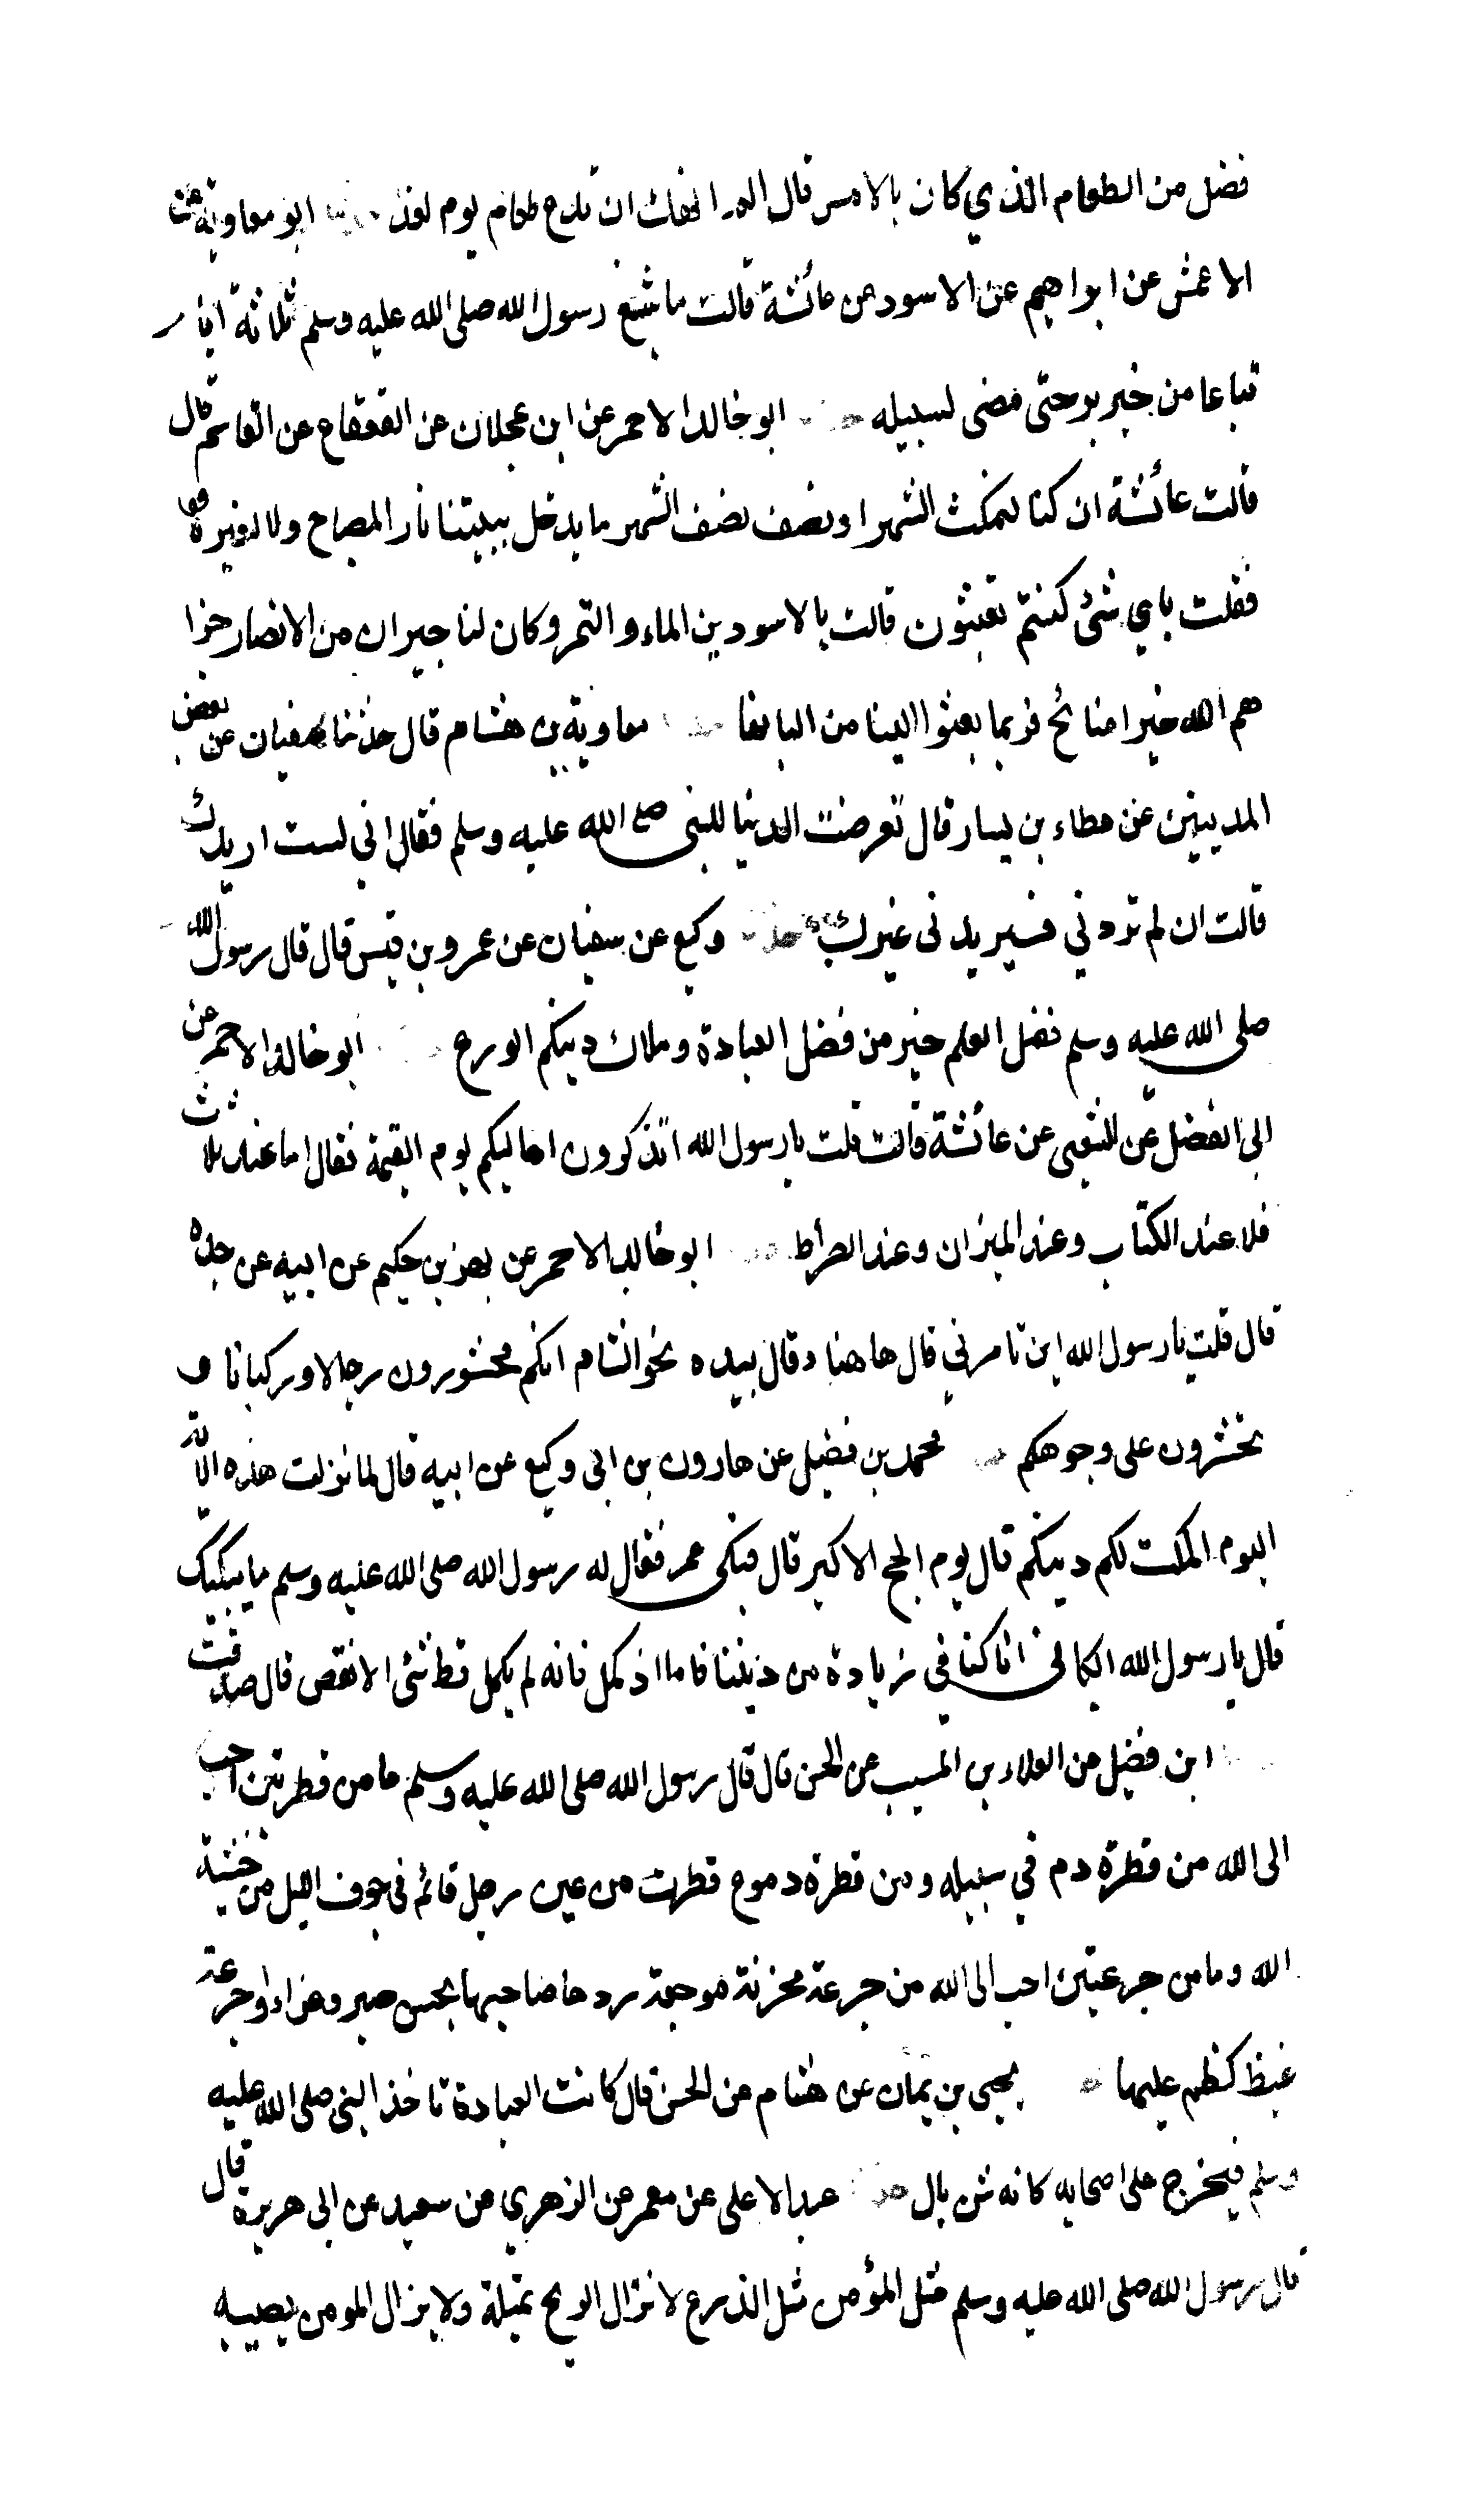 فضل من الطعام الذي كان بالامس قال الم انهك ان تدع طعام يوم لغد ابو معاوية عن
الاعمش عن ابراهيم عن الاسود عن عائشة قالت ما شبع رسول الله صلى الله عليه وسلم ثلاثة ايام
تباعا من خبز بر حتى مضى لسبيله ابو خالد الاحمر عن ابن عجلان عن القعقاع عن القاسم قال
قالت عائشة ان كنا لنمكث الشهر او نصف نصف الشهر ما يدخل بيتنا نار المصباح ولا لغيره
فقلت باي شئ كنتم تعيشون قالت بالاسودين الماء والتمر وكان لنا جيران من الانصار جزا
هم الله خيرا منائح فربما بعثوا الينا من البانها معاوية بن هشام قال حدثنا سفيان عن بعض
المدينيين عن عطاء بن يسار قال تعرضت الدنيا للنبى صلى الله عليه وسلم فقال انى لست اريدك
قالت ان لم تردني فسيريدنى غيرك وكيع عن سفيان عن عمرو بن قيس قال قال رسول الله
صلى الله عليه وسلم فضل العلم خير من فضل العبادة وملاك دينكم الورع ابو خالد الاحمر عن
ابى الفضل عن الشعبى عن عائشة قالت قلت يا رسول الله اتذكرون اهاليكم يوم القيمة فقال اما عند ثلاث
فلا عند الكتاب وعند الميزان وعند الصراط ابو خالد الاحمر عن بهز بن حكيم عن ابيه عن جده
قال قلت يا رسول الله اين تامرني قال هاهنا وقال بيده نحو الشام انكم محشورون رجالا وركبانا و
تحشرون على وجوهكم محمد بن فضيل عن هارون بن ابى وكيع عن ابيه قال لما نزلت هذه الاية
اليوم اكملت لكم دينكم قال يوم الحج الاكبر قال فبكى عمر فقال له رسول الله صلى الله عليه وسلم ما يبكيك
قال يا رسول الله ابكانى انا كنا فى زيادة من ديننا فاما اذ كمل فانه لم يكمل قط شئ الا نقص قال صدقت
ابن فضيل عن العلاء بن المسيب عن الحسن قال قال رسول الله صلى الله عليه وسلم ما من قطرتين احب
الى الله من قطرة دم في سبيله ومن قطرة دموع قطرت من عين رجل قائم فى جوف الليل من خشية
الله وما من جرعتين احب الى الله من جرعة محزنة موجعة ردها صاحبها بحسن صبر وعزاء او جرعة
غيظ كظم عليها يحيى بن يمان عن هشام عن الحسن قال كانت العبادة تاخذ النبى صلى الله عليه
وسلم فيخرج على اصحابه كانه شن بال عبد الاعلى عن معمر عن الزهري عن سعيد عن ابى هريرة قال
قال رسول الله صلى الله عليه وسلم مثل المؤمن مثل الزرع لا تزال الريح تميله ولا يزال المومن يصيبه